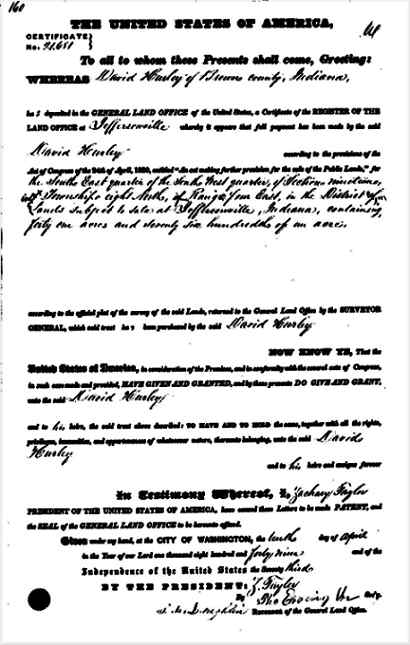 160
THE UNITED STATES OF AMERICA,
CERTIFICATE
No. 21,651
To all to whom these Presents shall come, Greeting:
WHEREAS David Hurley of Brown county, Indiana,
ha s deposited in the GENERAL LAND OFFICE of the United States, a Certificate of the REGISTER OF THE
LAND OFFICE at Jeffersonville whereby it appears that full payment has been made by the said
David Hurley according to the provisions of the
Act of Congress of the 24th of April, 1820, entitled "An act making further provision for the sale of the Public Lands," for
the South East quarter of the South West quarter, of Section nineteen,
in Township eight North, of Range four East, in the District of
Lands subject to sale at Jeffersonville, Indiana, containing
forty one acres and seventy six hundredths of an acre
according to the official plat of the survey of the said Lands, returned to the General Land Office by the SURVEYOR
GENERAL, which said tract ha s been purchased by the said David Hurley
NOW KNOW YE, That the
United States of America, in consideration of the Premises, and in conformity with the several acts of Congress,
in such case made and provided, HAVE GIVEN AND GRANTED, and by these presents DO GIVE AND GRANT,
unto the said David Hurley
and to his heirs, the said tract above described: TO HAVE AND TO HOLD the same, together with all the rights,
privileges, immunities, and appurtenances of whatsoever nature, thereunto belonging, unto the said David
Hurley
and to his heirs and assigns forever
In Testimony Whereof, I, Zachary Taylor
PRESIDENT OF THE UNITED STATES OF AMERICA, have caused these Letters to be made PATENT, and
the SEAL of the GENERAL LAND OFFICE to be hereunto affixed.
Given under my hand, at the CITY OF WASHINGTON, the tenth day of April
in the Year of our Lord one thousand eight hundred and forty nine and of the
Independence of the United States the Seventy third
BY THE PRESIDENT: Z. Taylor
By Tho Ewing Jr Sec'y.
Recorder of the General Land Office.